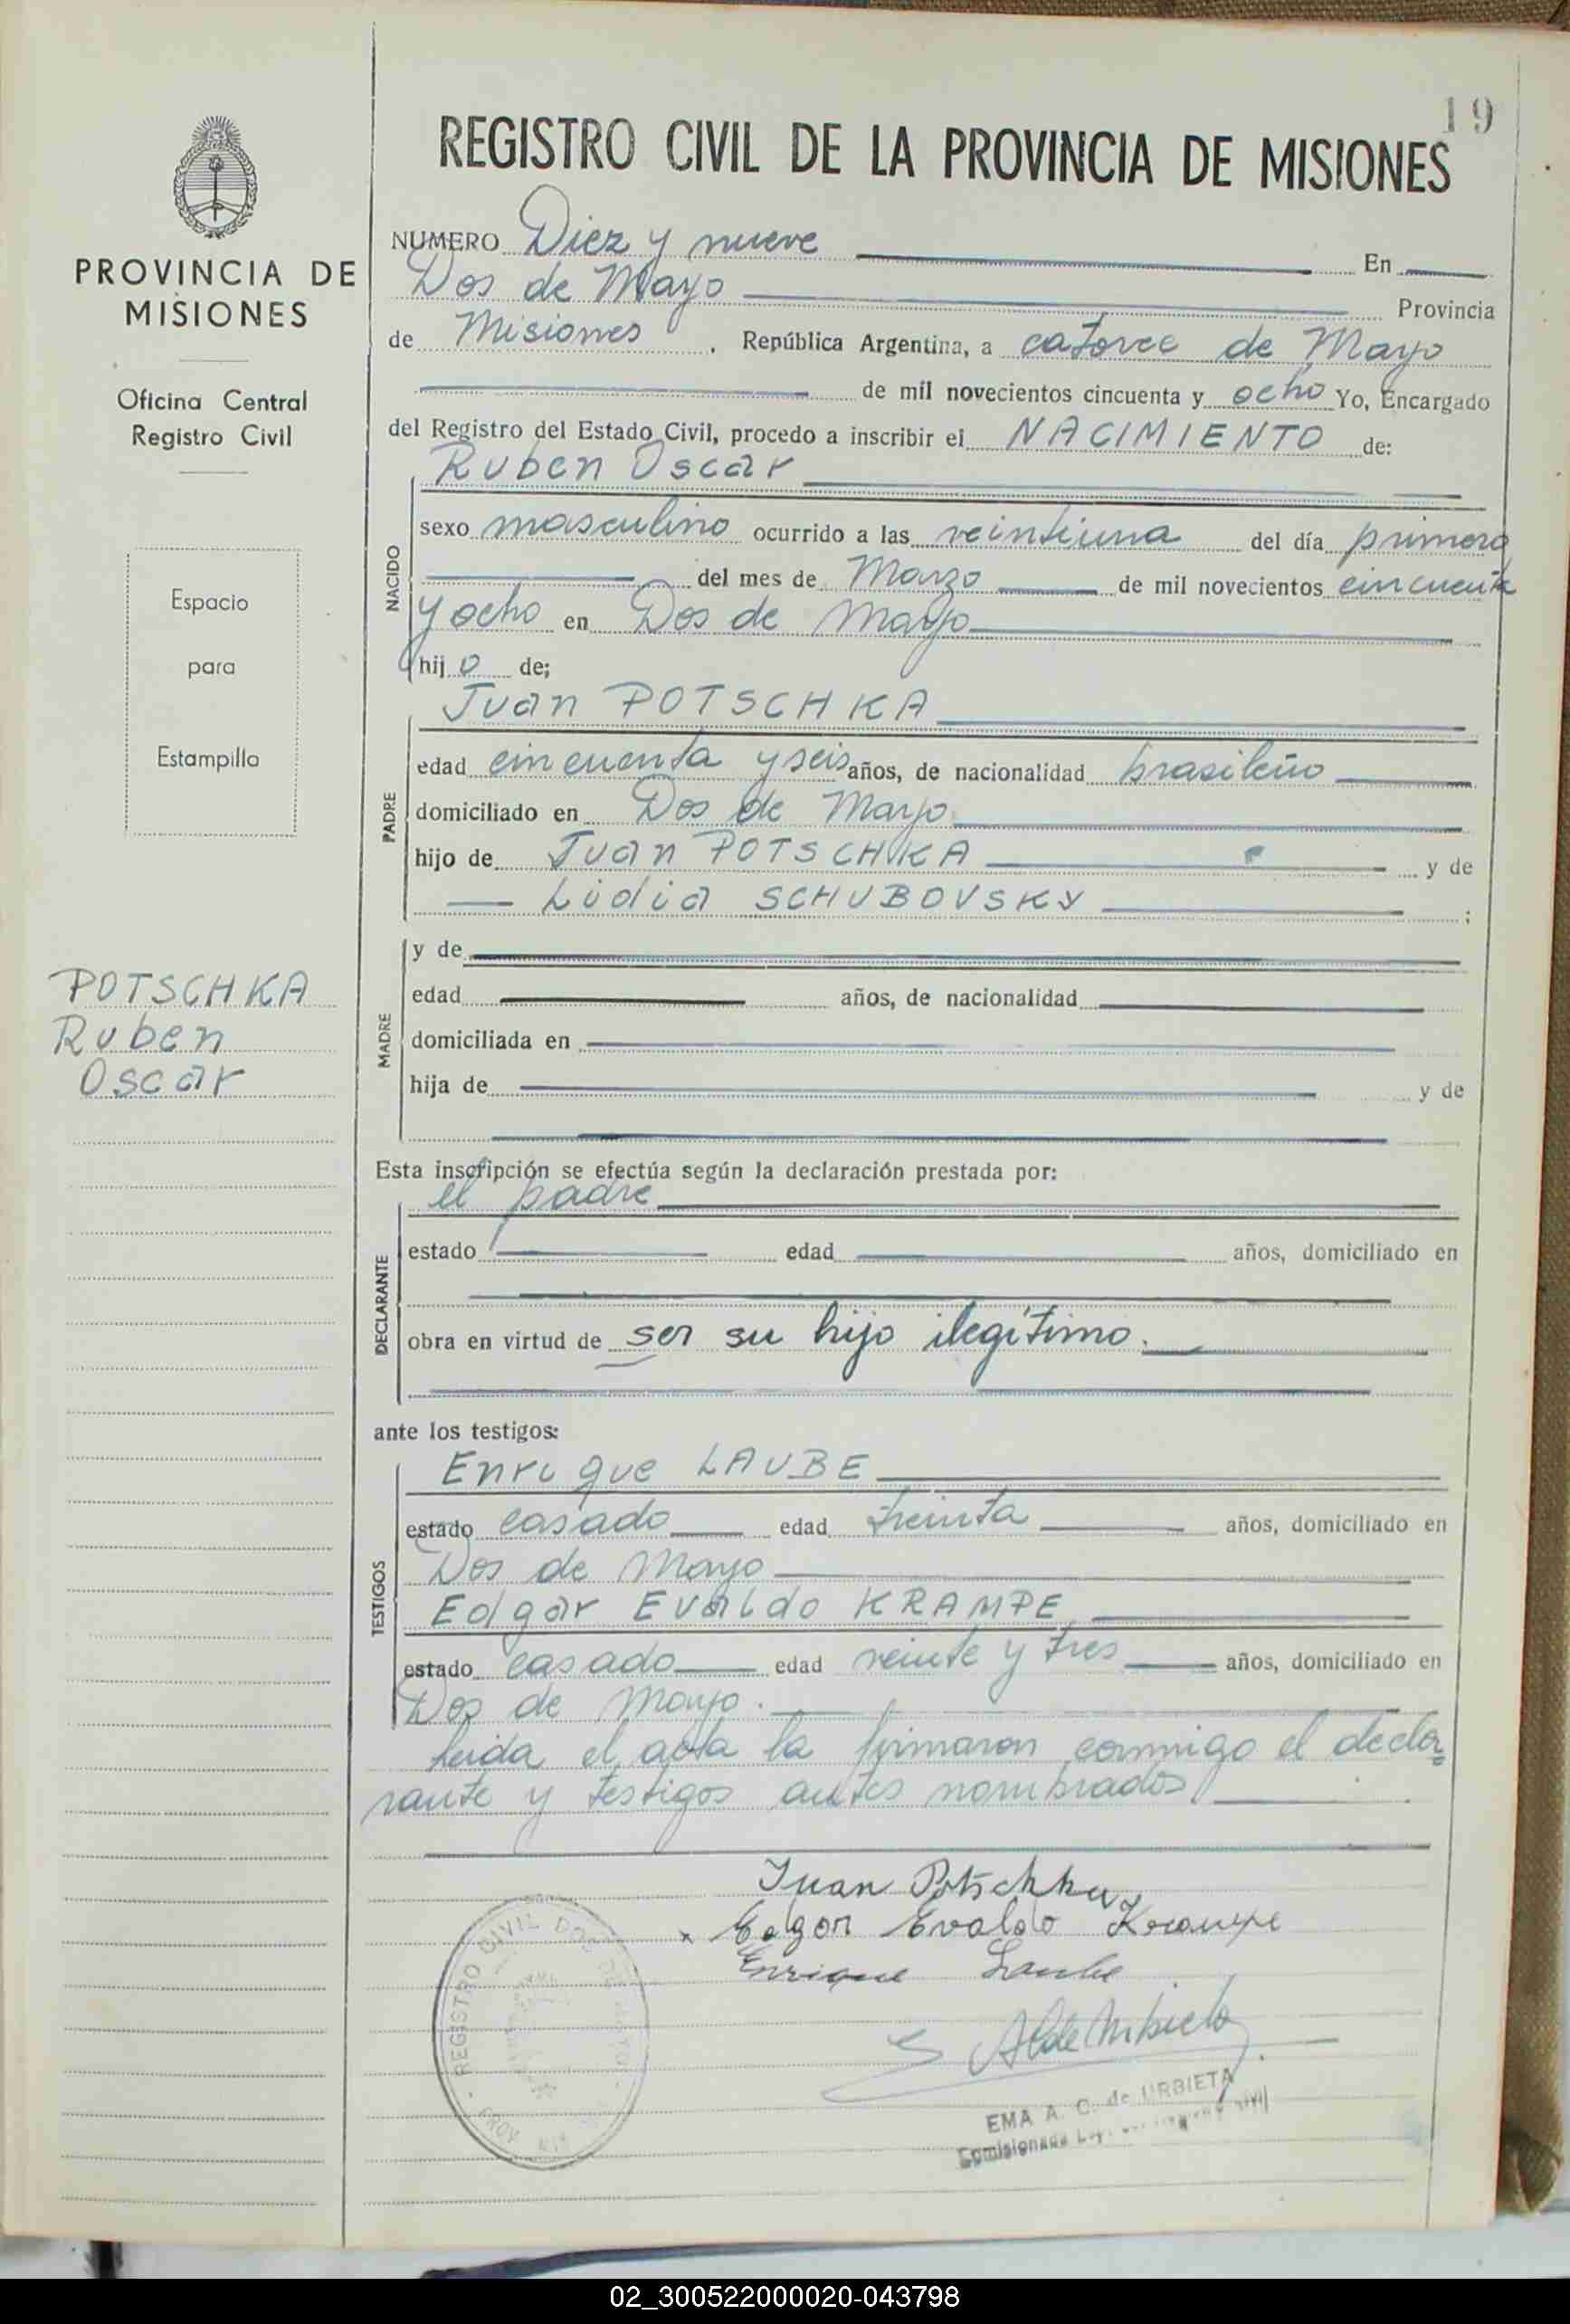 19
REGISTRO CIVIL DE LA PROVINCIA DE MISIONES
PROVINCIA DE
MISIONES
Oficina Central
Registro Civil
Espacio
para
Estampilla
POTSCHKA
Ruben
Oscar
NUMERO Diez y nueve En
Dos de Mayo Provincia
de Misiones, República Argentina, a catorce de Mayo
de mil novecientos cincuenta y ocho Yo, Encargado
del Registro del Estado Civil, procedo a inscribir el NACIMIENTO de:
Ruben Oscar
NACIDO
sexo masculino ocurrido a las veintiuna del día primero
del mes de Marzo de mil novecientos cincuenta
y ocho en Dos de Mayo
hijo de;
Juan POTSCHKA
PADRE
edad cincuenta y seis años, de nacionalidad brasileño
domiciliado en Dos de Mayo
hijo de Juan POTSCHKA y de
Lidia SCHUBOVSKY ;
MADRE
y de
edad años, de nacionalidad
domiciliada en
hija de y de
Esta inscripción se efectúa según la declaración prestada por:
el padre
DECLARANTE
estado edad años, domiciliado en
obra en virtud de ser su hijo ilegítimo.
ante los testigos:
Enrique LAUBE
TESTIGOS
estado casado edad treinta años, domiciliado en
Dos de Mayo
Edgar Evaldo KRAMPE
estado casado edad veinte y tres años, domiciliado en
Dos de Mayo.
Leida el acta la firmaron conmigo el decla=
rante y testigos antes nombrados
Juan Potschka
x Edgar Evaldo Krampe
Enrique Laube
REGISTRO CIVIL DOS DE MAYO
PROV. MIS.
EMA A. C. de URBIETA
Comisionada
02_300522000020-043798